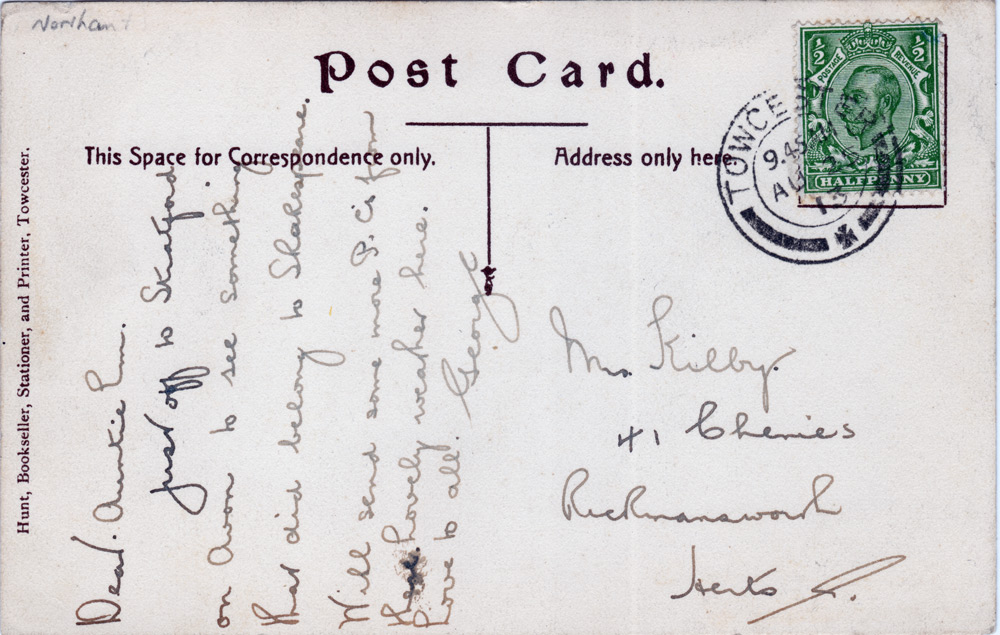 Northan
Post Card.
This Space for Correspondence only.
Address only here.
Hunt, Bookseller, Stationer, and Printer, Towcester.
½ ½
POSTAGE REVENUE
HALFPENNY
TOWCESTER
9.45 AM
AU
13
Dear. Auntie Em.
just off to Stratford
on Avon to see something
that did belong to Shakespeare.
Will send some more P.Cs from
there. Lovely weather here.
Love to all. George
Mrs. Kilby.
41 Chenies
Rickmansworth
Herts